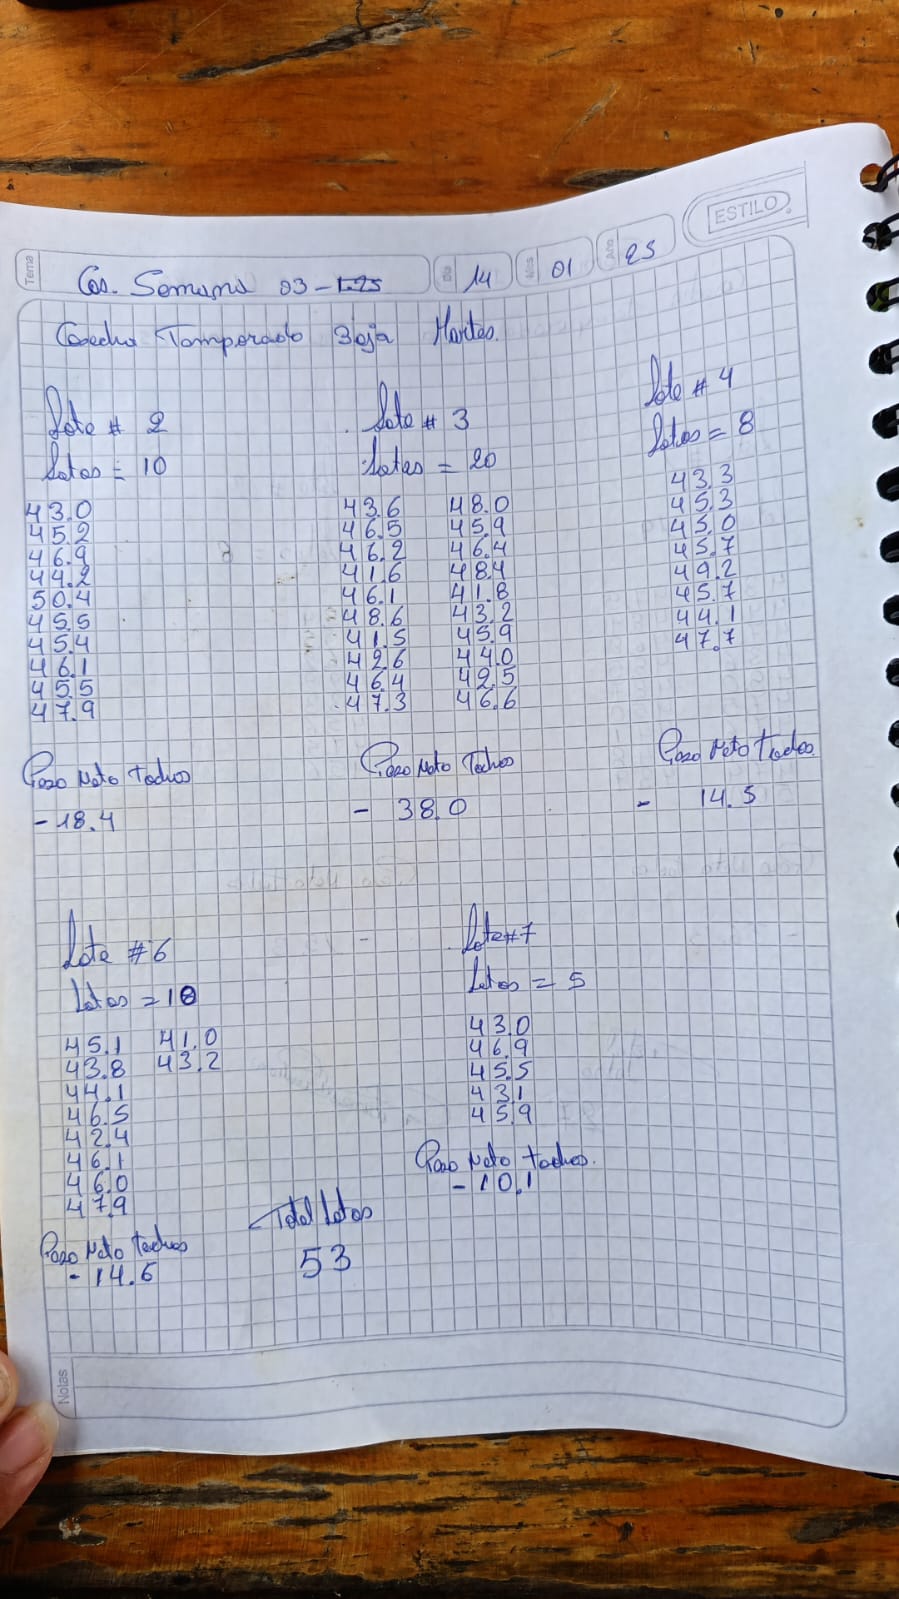 ESTILO
Tema Cos. Semana 03-1-25 Día 14 Mes 01 Año 25
Cosecha Temporado Baja Martes.
Lote # 2
Latas = 10
43.0
45.2
46.9
44.2
50.4
45.5
45.4
46.1
45.5
47.9
Peso Neto Tachos
- 18.4
Lote # 3
Latas = 20
43.6 48.0
46.5 45.9
46.2 46.4
41.6 48.4
46.1 41.8
48.6 43.2
41.5 45.9
42.6 44.0
46.4 42.5
47.3 46.6
Peso Neto Tachos
- 38.0
Lote # 4
Latas = 8
43.3
45.3
45.0
45.7
49.2
45.7
44.1
47.7
Peso Neto Tachos
- 14.5
Lote # 6
Latas = 10
45.1 41.0
43.8 43.2
44.1
46.5
42.4
46.1
46.0
47.9
Peso Neto Tachos
- 14.6
Lote #7
Latas = 5
43.0
46.9
45.5
43.1
45.9
Peso Neto Tachos.
- 10.1
Total Latas
53
Notas